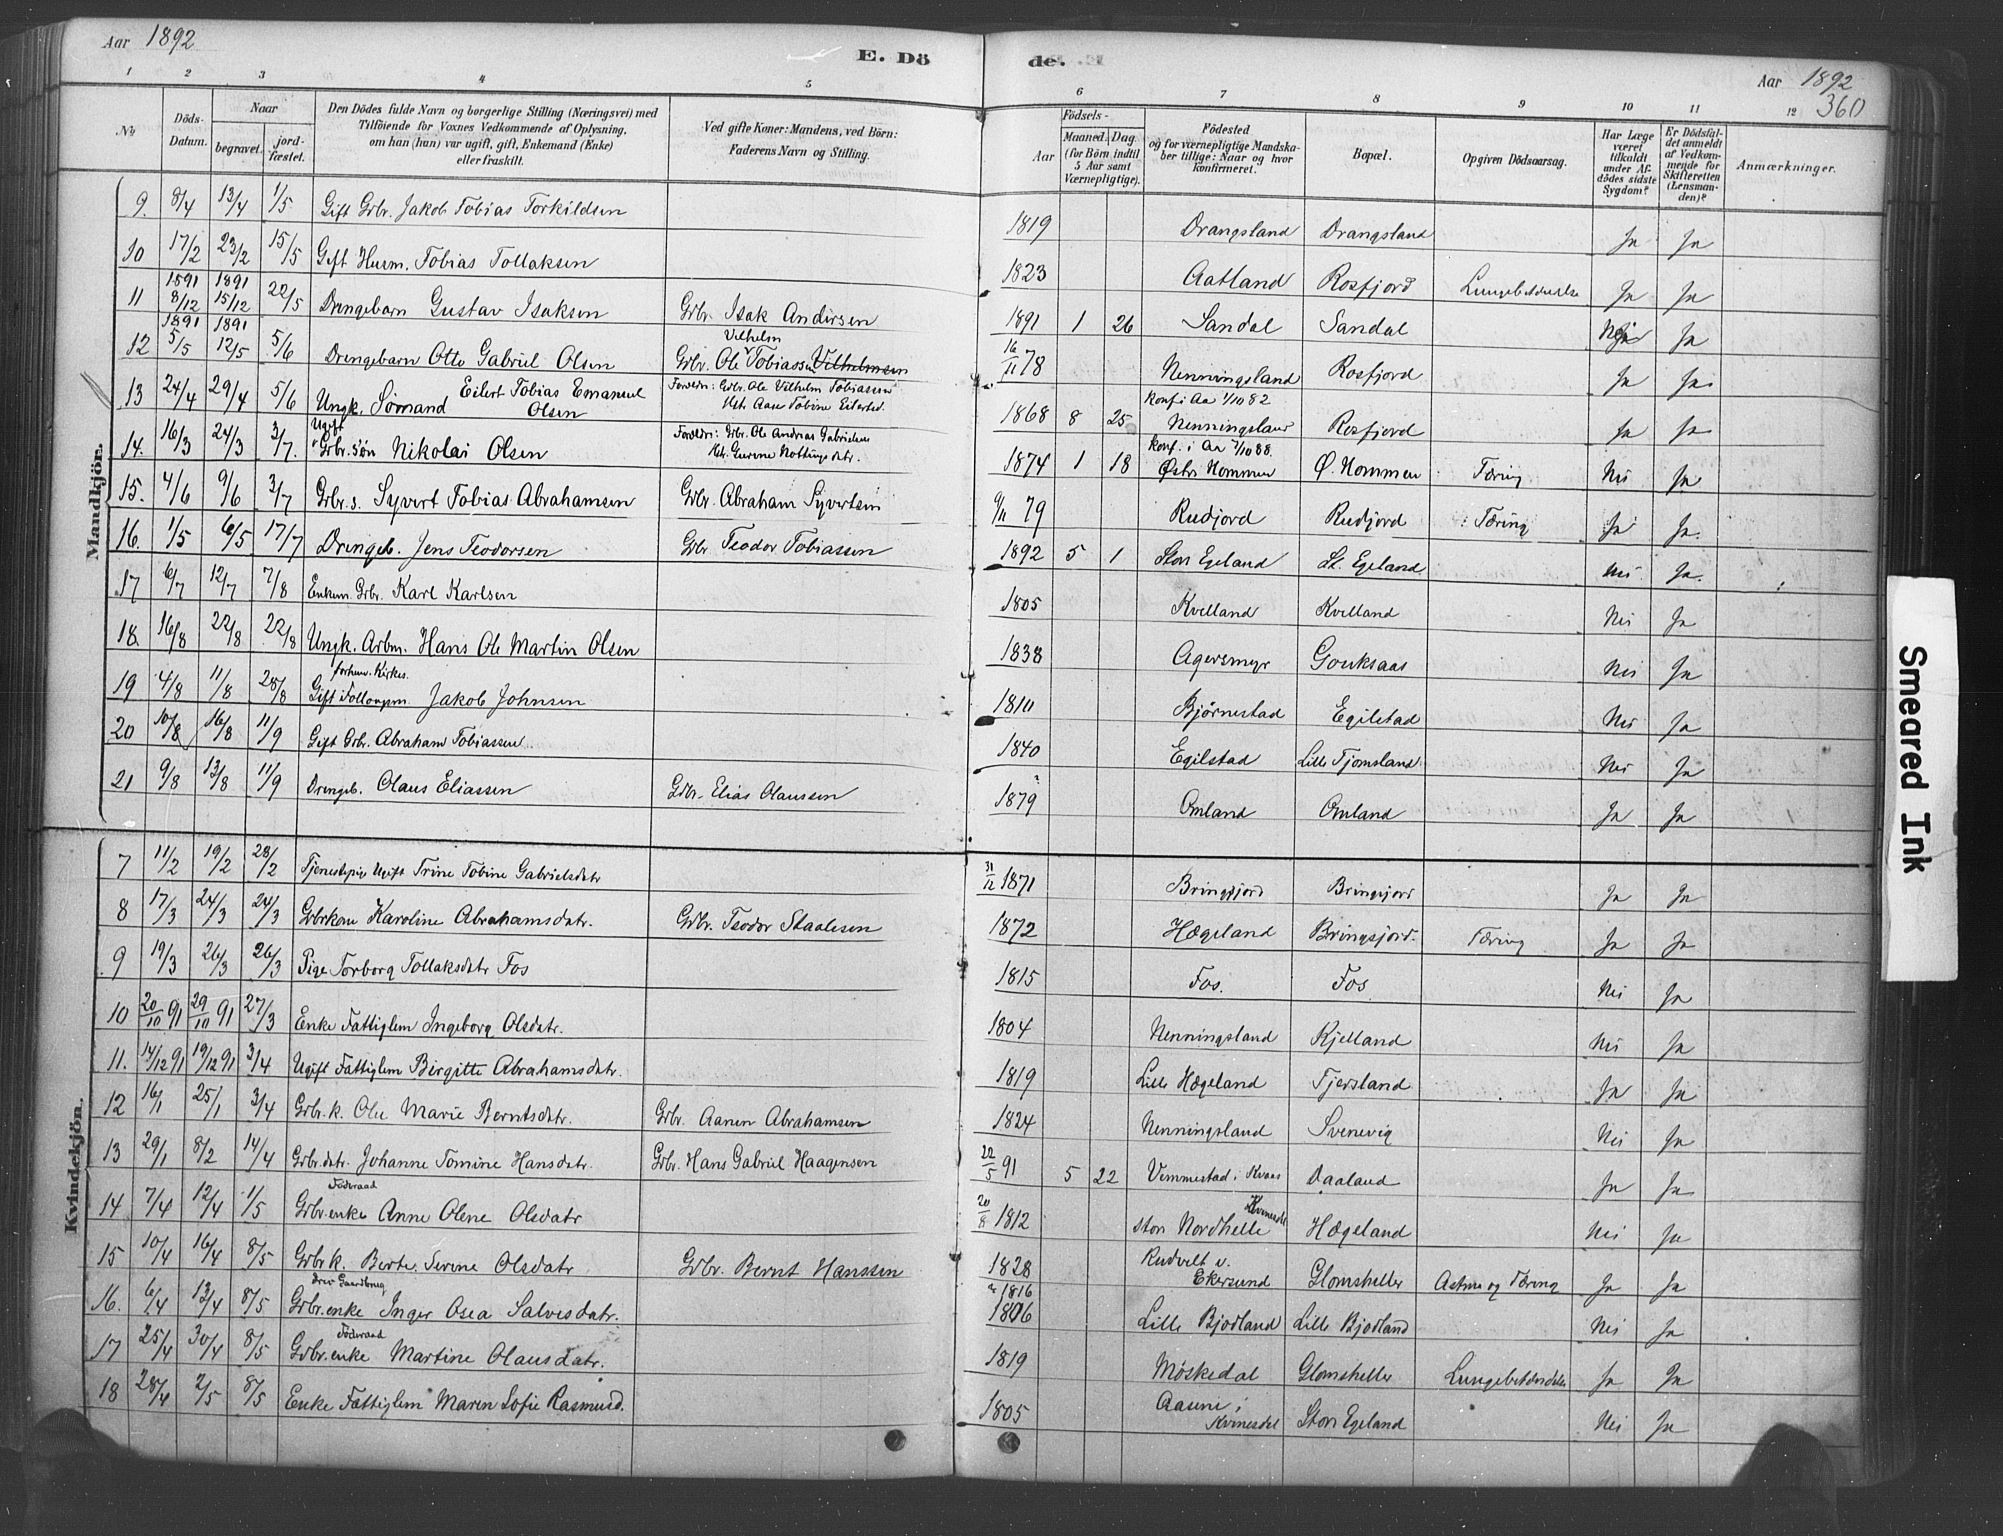 Aar 1892
E. Dö
de.
Aar 1892
360
1 2 3 4 5 6 7 8 9 10 11 12
No
Döds-Datum.
Naar
begravet.
jord-fæstet.
Den Dödes fulde Navn og borgerlige Stilling (Næringsvei) med
Tilföiende for Voxnes Vedkommende af Oplysning,
om han (hun) var ugift, gift, Enkemand (Enke)
eller fraskilt.
Ved gifte Koner: Mandens, ved Börn:
Faderens Navn og Stilling.
Födsels-
Aar
Maaned. Dag.
(for Börn indtil
5 Aar samt
Værnepligtige).
Födested
og for værnepligtige Mandska-
ber tillige: Naar og hvor
konfirmeret.
Bopæl.
Opgiven Dödsaarsag.
Har Læge
været
tilkaldt
under Af-
dödes sidste
Sygdom?
Er Dödsfal-
det anmeldt
af Vedkom-
mende for
Skifteretten
(Lensman-
den)?
Anmærkninger.
Mandkjön.
9. 8/4 13/4 1/5 Gift Gbr. Jakob Tobias Torkildsen 1819 Drangsland Drangsland Ja Ja
10 17/2 23/2 15/5 Gift Husm. Tobias Tollaksen 1823 Aatland Rosfjord Lungebetændelse Ja Ja
1891 1891
11 8/12 15/12 22/5 Drengebarn Gustav Isaksen Gbr. Isak Andersen 1891 1 26 Sandal Sandal Ja
1891 1891 Vilhelm
12 5/5 12/5 5/6 Drengebarn Otto Gabriel Olsen Gbr. Ole Tobiassen Vilhelmsen 16/11 78 Nenningsland Rosfjord Ja Ja
13 24/4 29/4 5/6 Ungk. Sømand Eilert Tobias Emanuel Olsen Foreldr: Gbr. Ole Vilhelm Tobiassen
Hst. Aase Tobine Eilertsd. 1868 8 25 konf i Aa 1/10 82
Nenningsland Rosfjord Ja Ja
14. 16/3 24/3 3/7. Ugift Gbr. Søn Nikolai Olsen Foreldr: Gbr. Ole Andreas Gabrielsen 1874 1 18 konf. i Aa 7/10 88.
Østr Nommen Ø. Nommen Tæring Nei Ja
15. 4/6 9/6 3/7 Gbr. s. Syvert Tobias Abrahamsen Gbr. Abraham Syvertsen 9/11 79 Rudjord Rudjord Tæring Ja Ja.
16. 1/5 6/5 17/7 Drengeb. Jens Teodorsen Gbr. Teodor Tobiassen 1892 5 1 Stor Egeland St. Egeland Nei Ja.
17 6/7 12/7 7/8 Enkem. Gbr. Karl Karlsen 1805 Kvelland Kvelland Nei Ja
18. 16/8 22/8 22/8 Ungk. Arbm. Hans Ole Martin Olsen 1838 Agersmyr Gouksaas Nei Ja
forhenv. Kirkes.
19 4/8 11/8 28/8 Gift Jakob Johnsen 1810 Bjørnestad Egilstad Nei Ja
20 10/8 16/8 11/9 Gift Gbr. Abraham Tobiassen 1840 Egilstad Lille Tjomsland Nei Ja
21 9/8 13/8 11/9 Drengeb. Olaus Eliassen Gbr. Elias Olaussen 1879 Omland Omland Ja Ja
Kvindekjön.
7 11/2 19/2 28/2 Tjenestepige Ugift Trine Tobine Gabrielsdatr 31/12 1871 Bringsjord Bringsjord Ja Ja
8 17/3 24/3 24/3 Gbrkone Karoline Abrahamsdatr. Gbr. Teodor Staalesen 1872 Hægeland Bringsjord. Tæring Ja Ja
9 19/3 26/3 26/3 Pige Torborg Tollaksdatr Fos 1815 Fos. Fos Nei Ja
10 20/10 91 29/10 91 27/3 Enke Fattiglem Ingeborg Olsdatr. 1804 Nenningsland Kjelland Nei Ja
11. 14/12 91 19/12 91 3/4 Ugift Fattiglem Birgitte Abrahamsdatr. 1819 Lille Hægeland Tjersland Ja Ja
12 16/1 25/1 3/4 Gbr. k. Ole Marie Berntsdatr. Gbr. Aanen Abrahamsen 1824 Nenningsland Svenevig Nei Ja
13 29/1 8/2 14/4 Gbr. datr. Johanne Tomine Hansdatr. Gbr. Hans Gabriel Haagensen 22/5 91 5 22 Vemmestad i Kvaas Daaland Ja Ja
Föderaad
14 7/4 12/4 1/5 Gbr. enke Anne Olene Olsdatr 20/8 1812 stor Nordhelle Kvinesdal Hægeland Nei Ja
15 10/4 16/4 8/5 Gbr k. Berte Serine Olsdatr Gbr. Bernt Hanssen 1828 Rudvelt v.
Ekersund Glomsheller Astma og Tæring Ja Ja
drev Gaardbrug
16. 6/4 13/4 8/5 Gbr. enke Inger Osea Salvesdatr. 1816
1806 Lille Bjodland Lille Bjodland Nei Ja
Föderaad
17 25/4 30/4 8/5 Gbr. enke Martine Olausdatr. 1819 Møskedal Glomsheller Lungebetændelse Ja Ja
18 28/4 2/5 8/5 Enke Fattiglem Maren Sofie Rasmusd. 1805 Aamne i
Kvinesdal Stor Egeland Nei Ja
Smeared Ink